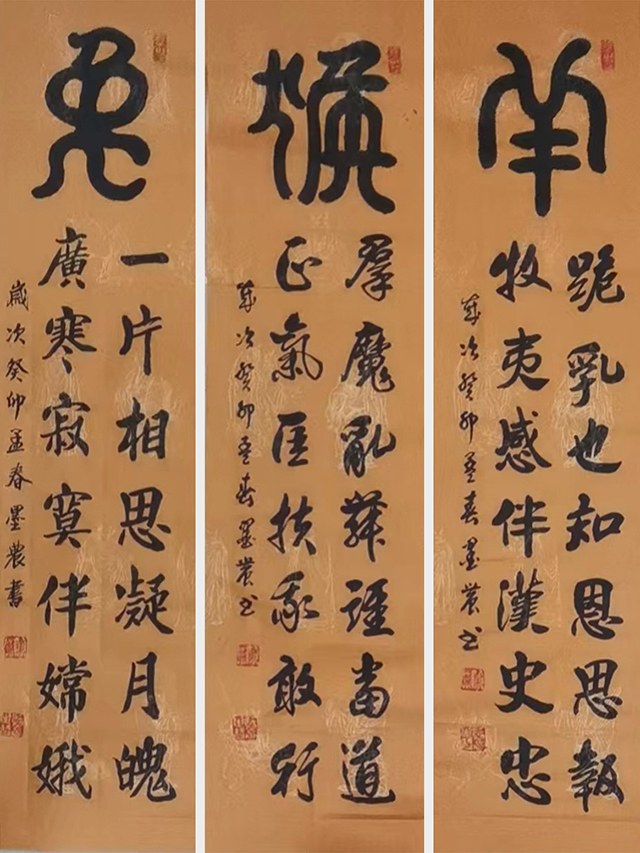 羊
跪乳也知恩思報
牧夷感伴漢史忠
歲次癸卯孟春墨農书
羣魔亂舞誰當道
正氣匡扶我敢行
歲次癸卯孟春墨農书
兔
一片相思凝月魄
廣寒寂寞伴嫦娥
歲次癸卯孟春墨農書